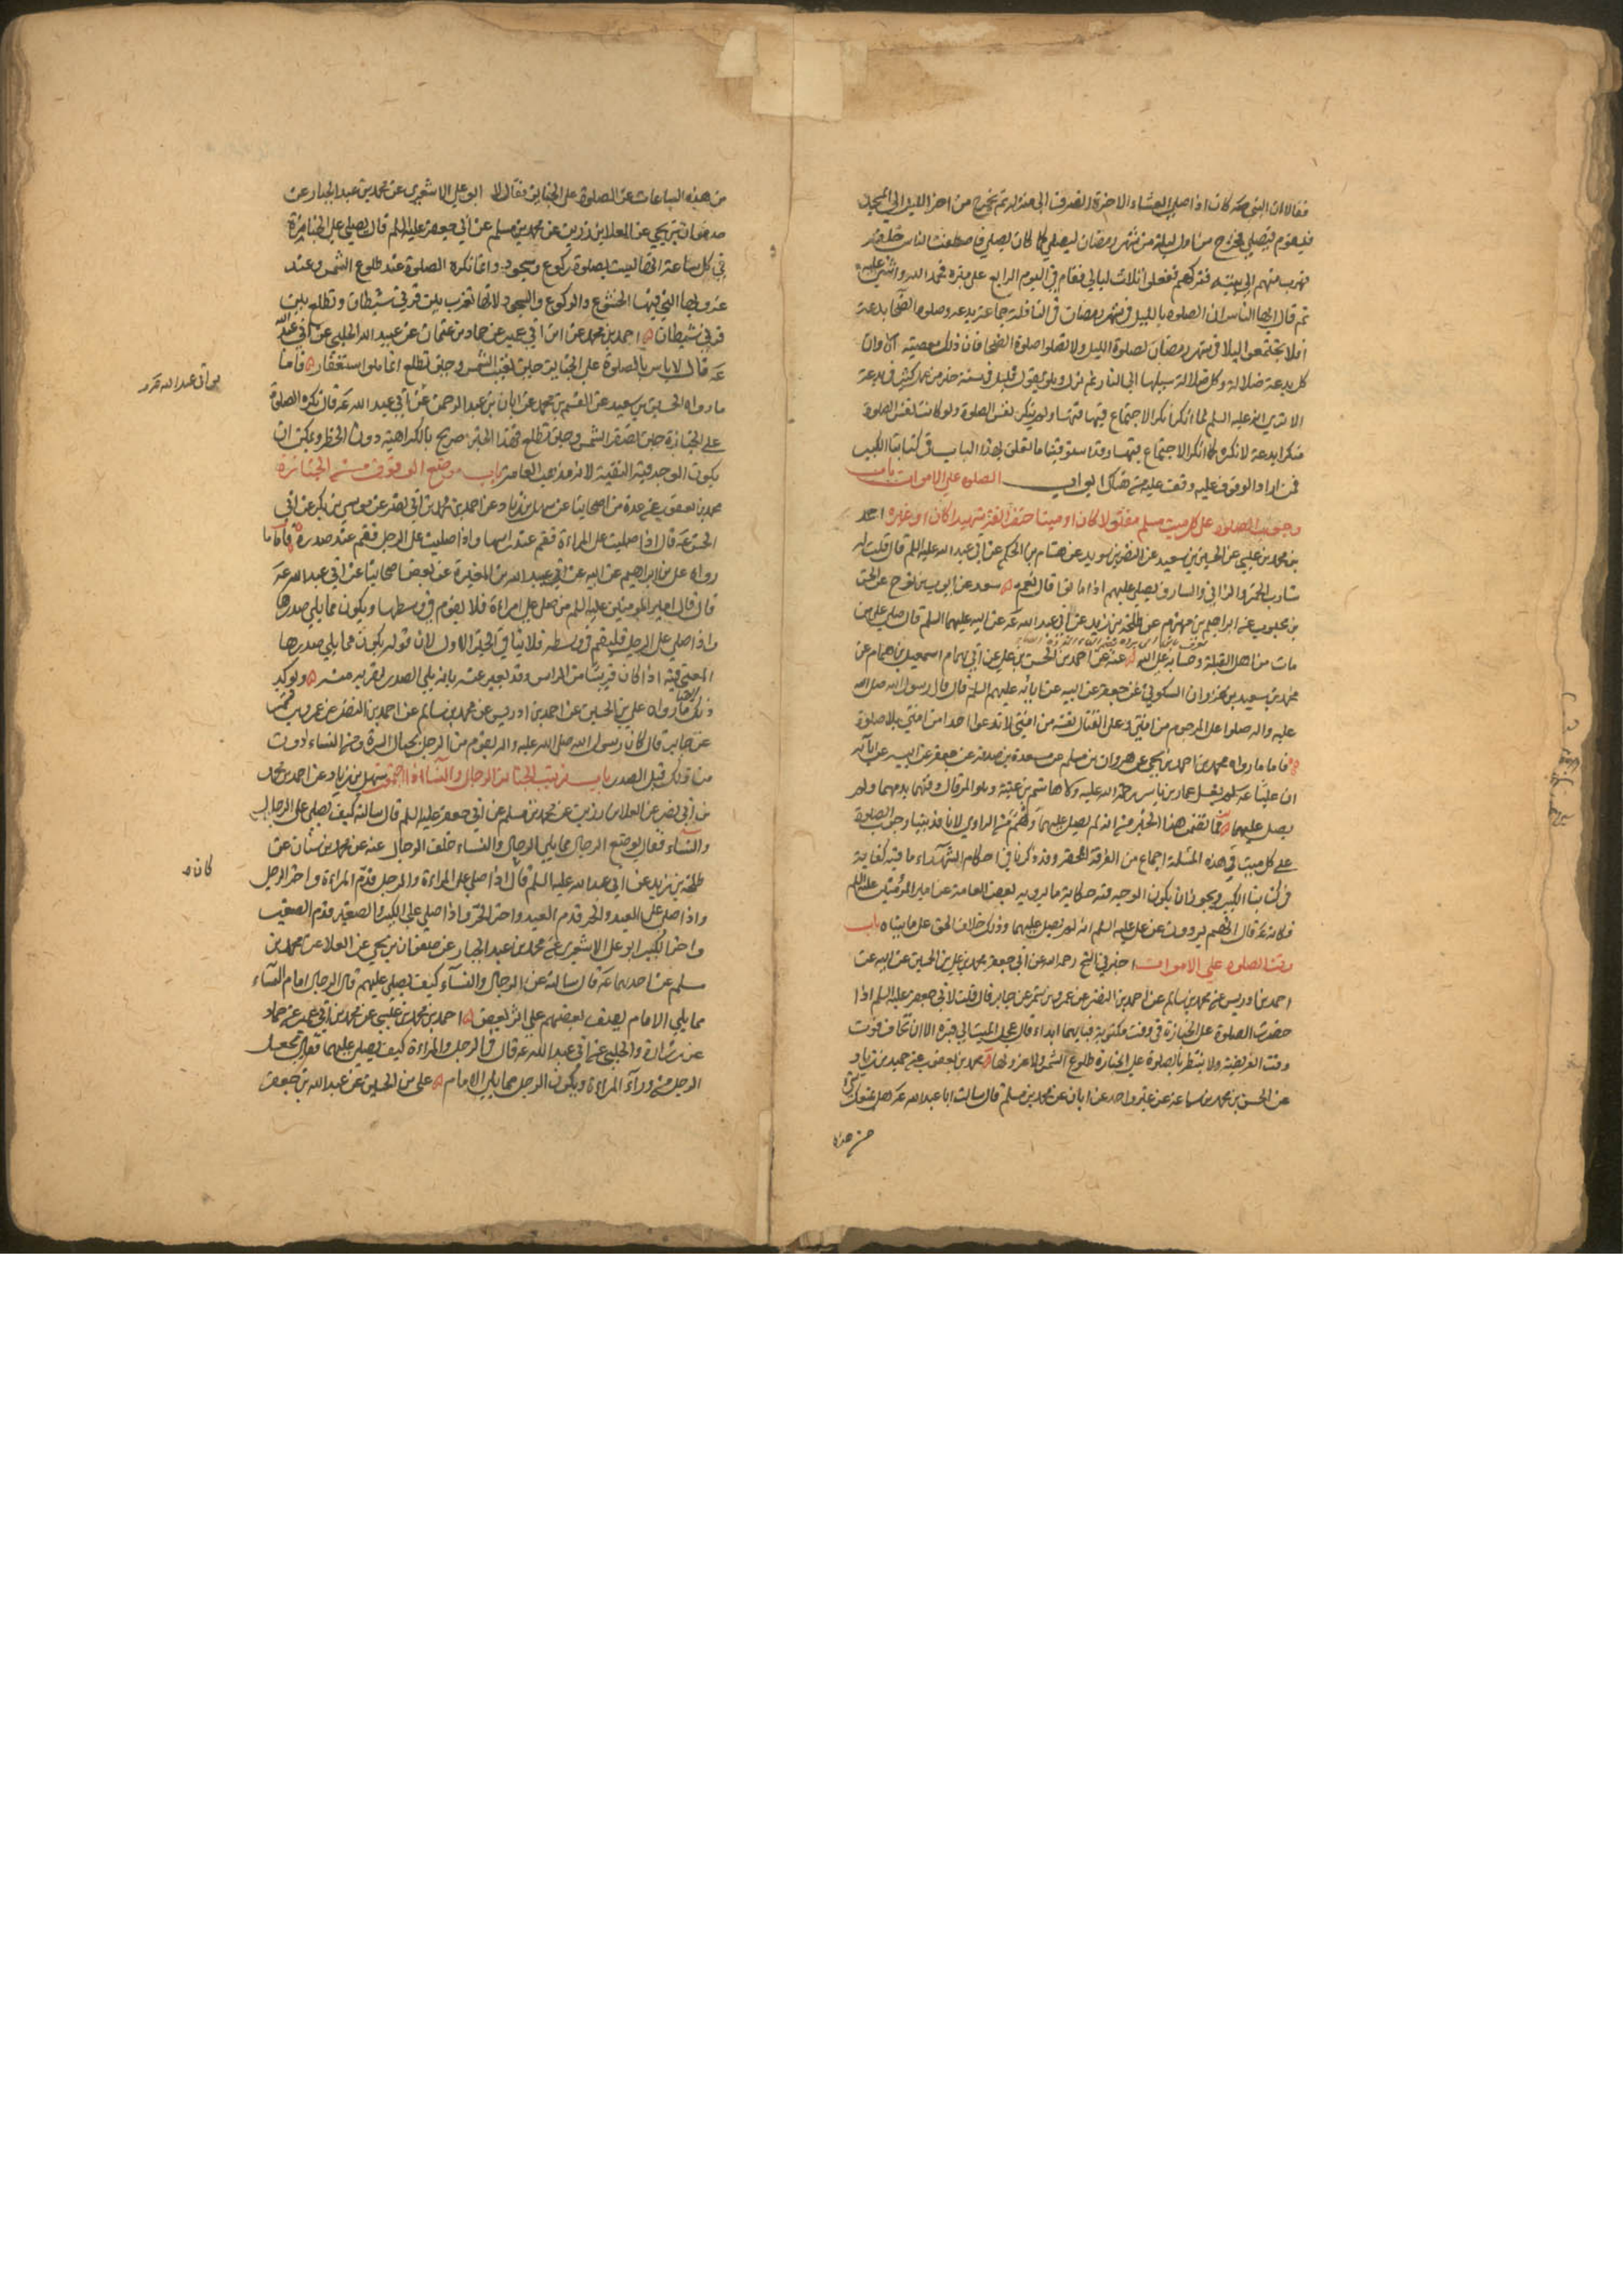 فقالا ان النبي صه كان اذا صلى العشاء الاخرة انصرف الى منزله ثم يخرج من اخر الليل الى المسجد
فيقوم فيصلي فخرج من اول ليلة من شهر رمضان ليصلي كما كان يصلي فاصطف الناس خلفه
فهرب منهم الى بيته وتركهم ففعلوا ثلاث ليالي فقام في اليوم الرابع على منبره فحمد الله واثنى عليه
ثم قال ايها الناس ان الصلوة بالليل في شهر رمضان في النافلة جماعة بدعة وصلوة الضحى بدعة
افلا تجتمعوا ليلا في شهر رمضان لصلوة الليل ولا تصلوا صلوة الضحى فان ذلك معصية الا وان
كل بدعة ضلالة وكل ضلالة سبيلها الى النار ثم نزل وهو يقول قليل في سنة خير من كثير في بدعة
الا ترى انه عليه السلم لما انكر انكر الاجتماع فيها ولم ينكر نفس الصلوة ولو كانت نفس الصلوة
منكرا بدعة لانكره كما انكر الاجتماع فيها وقد استوفينا ما يتعلق بهذا الباب في كتابنا الكبير
فمن اراد الوقوف عليه وقف عليه من هناك ابواب الصلوة على الاموات باب
وجوب الصلوة على كل ميت مسلم مقتولا كان او ميتا حتف انفه شهيدا كان او غيره احمد
بن محمد بن عيسى عن الحسين بن سعيد عن النضر بن سويد عن هشام بن الحكم عن ابي عبد الله عليه السلم قال قلت له
شارب الخمر والزاني والسارق يصلى عليهم اذا ماتوا قال نعم سعد عن ايوب بن نوح عن الحسن
بن محبوب عن ابراهيم بن مهزم عن طلحة بن زيد عن ابي عبد الله عه عن ابيه عليهما السلم قال صل على من
مات من اهل القبلة وحسابه على الله عنه عن احمد بن الحسن بن علي عن ابي همام اسمعيل بن همام عن
محمد بن سعيد بن غزوان السكوني عن جعفر عن ابيه عن ابائه عليهم السلم قال قال رسول الله صلى الله
عليه واله صلوا على المرجوم من امتي وعلى القتال نفسه من امتي لا تدعوا احدا من امتي بلا صلوة
فاما ما رواه محمد بن احمد بن يحيى عن هرون بن مسلم عن مسعدة بن صدقة عن جعفر عن ابيه عن ابائه
ان عليا عه لم يغسل عمار بن ياسر رحمة الله عليه ولا هاشم بن عتبة وهو المرقال دفنهما بدمهما ولم
يصل عليهما فما تضمن هذا الخبر من انه لم يصل عليهما وهم من الراوي لانا قد بينا وجوب الصلوة
على كل ميت في هذه المسئلة اجماع من الفرقة المحقة وقد ذكرنا في احكام الشهداء ما فيه كفاية
في كتابنا الكبير ويجوز ان يكون الوجه فيه حكاية ما يرويه بعض العامة عن امير المؤمنين عليه السلم
فكانه عه قال انهم يروون عن علي عليه السلم انه لم يصل عليهما وذلك خلاف الحق على ما بيناه باب
وقت الصلوة على الاموات اخبرني الشيخ رحمه الله عن ابي جعفر محمد بن علي بن الحسين عن ابيه عن
احمد بن ادريس عن محمد بن سالم عن احمد بن النضر عن عمرو بن شمر عن جابر قال قلت لابي جعفر عليه السلم اذا
حضرت الصلوة على الجنازة في وقت مكتوبة فبايهما ابداء قال عجل الميت الى قبره الا ان تخاف فوت
وقت الفريضة ولا تنتظر بالصلوة على الجنازة طلوع الشمس ولا غروبها محمد بن يعقوب عن حميد بن زياد
عن الحسن بن محمد بن سماعة عن غير واحد عن ابان عن محمد بن مسلم قال سالت ابا عبد الله عه هل يمنعك شي
من هذه
من هذه الساعات عن الصلوة على الجنايز فقال لا ابو علي الاشعري عن محمد بن عبد الجبار عن
صفوان بن يحيى عن العلا بن رزين عن محمد بن مسلم عن ابي جعفر عليه السلم قال يصلى على الجنازة
في كل ساعة انها ليست بصلوة ركوع وسجود وانما تكره الصلوة عند طلوع الشمس وعند
غروبها التي فيها الخشوع والركوع والسجود لانها تغرب بين قرني شيطان وتطلع بين
قرني شيطان احمد بن محمد عن ابن ابي عمير عن حماد بن عثمان عن عبيد الله الحلبي عن ابي عبد الله
عه قال لا باس بالصلوة على الجنايز حين تغيب الشمس وحين تطلع انما هو استغفار فاما
ما رواه الحسين بن سعيد عن القسم بن محمد عن ابان بن عبد الرحمن عن ابي عبد الله عه قال تكره الصلوة
على الجنازة حين تصفر الشمس وحين تطلع فهذا الخبر صريح بالكراهية دون الحظر ويمكن ان
يكون الوجه فيه التقية لانه مذهب العامة باب موضع الوقوف من الجنازة
محمد بن يعقوب عن عدة من اصحابنا عن سهل بن زياد عن احمد بن محمد بن ابي نصر عن موسى بن بكر عن ابي
الحسن عه قال اذا صليت على المراءة فقم عند راسها واذا صليت على الرجل فقم عند صدره فاما ما
رواه علي بن ابراهيم عن ابيه عن ابي عبد الله بن المغيرة عن بعض اصحابنا عن ابي عبد الله عه
قال قال امير المومنين عليه السلم من صلى على امراءة فلا يقوم في وسطها ويكون مما يلي صدرها
واذا صلى على الرجل فليقم في وسطه فلا ينافي الخبر الاول لان قوله يكون مما يلي صدرها
المعنى فيه اذا كان قريبا من الراس وقد يعبر عنه بانه يلي الصدر لقربه منه ويوكد
ذلك ما رواه علي بن الحسين عن احمد بن ادريس عن محمد بن سالم عن احمد بن النضر عن عمرو بن شمر
عن جابر قال كان رسول الله صلى الله عليه واله يقوم من الرجل بحيال السرة ومن النساء دون
من ذلك قبل الصدر باب ترتيب الجنائز الرجال والنساء سهل بن زياد عن احمد بن محمد
بن ابي نصر عن العلا بن رزين عن محمد بن مسلم عن ابي جعفر عليه السلم قال سالته كيف يصلى على الرجال
والنساء فقال يوضع الرجال مما يلي الرجال والنساء خلف الرجال عنه عن محمد بن سنان عن
طلحة بن زيد عن ابي عبد الله عليه السلم قال اذا صلى على المراءة والرجل قدم المراءة واخر الرجل
واذا صلى على العبد والحر قدم العبد واخر الحر واذا صلى على الكبير والصغير قدم الصغير
واخر الكبير ابو علي الاشعري عن محمد بن عبد الجبار عن صفوان بن يحيى عن العلا عن محمد بن
مسلم عن احدهما عه قال سالته عن الرجال والنساء كيف يصلى عليهم قال الرجال امام النساء
مما يلي الامام يصف بعضهم على اثر بعض احمد بن محمد بن عيسى عن محمد بن ابي عمير عن حماد
عن زرارة والحلبي عن ابي عبد الله عه قال في الرجل والمراءة كيف يصلى عليهما فقال تجعل
الرجل من وراء المراءة ويكون الرجل مما يلي الامام علي بن الحسين عن عبد الله بن جعفر
كان